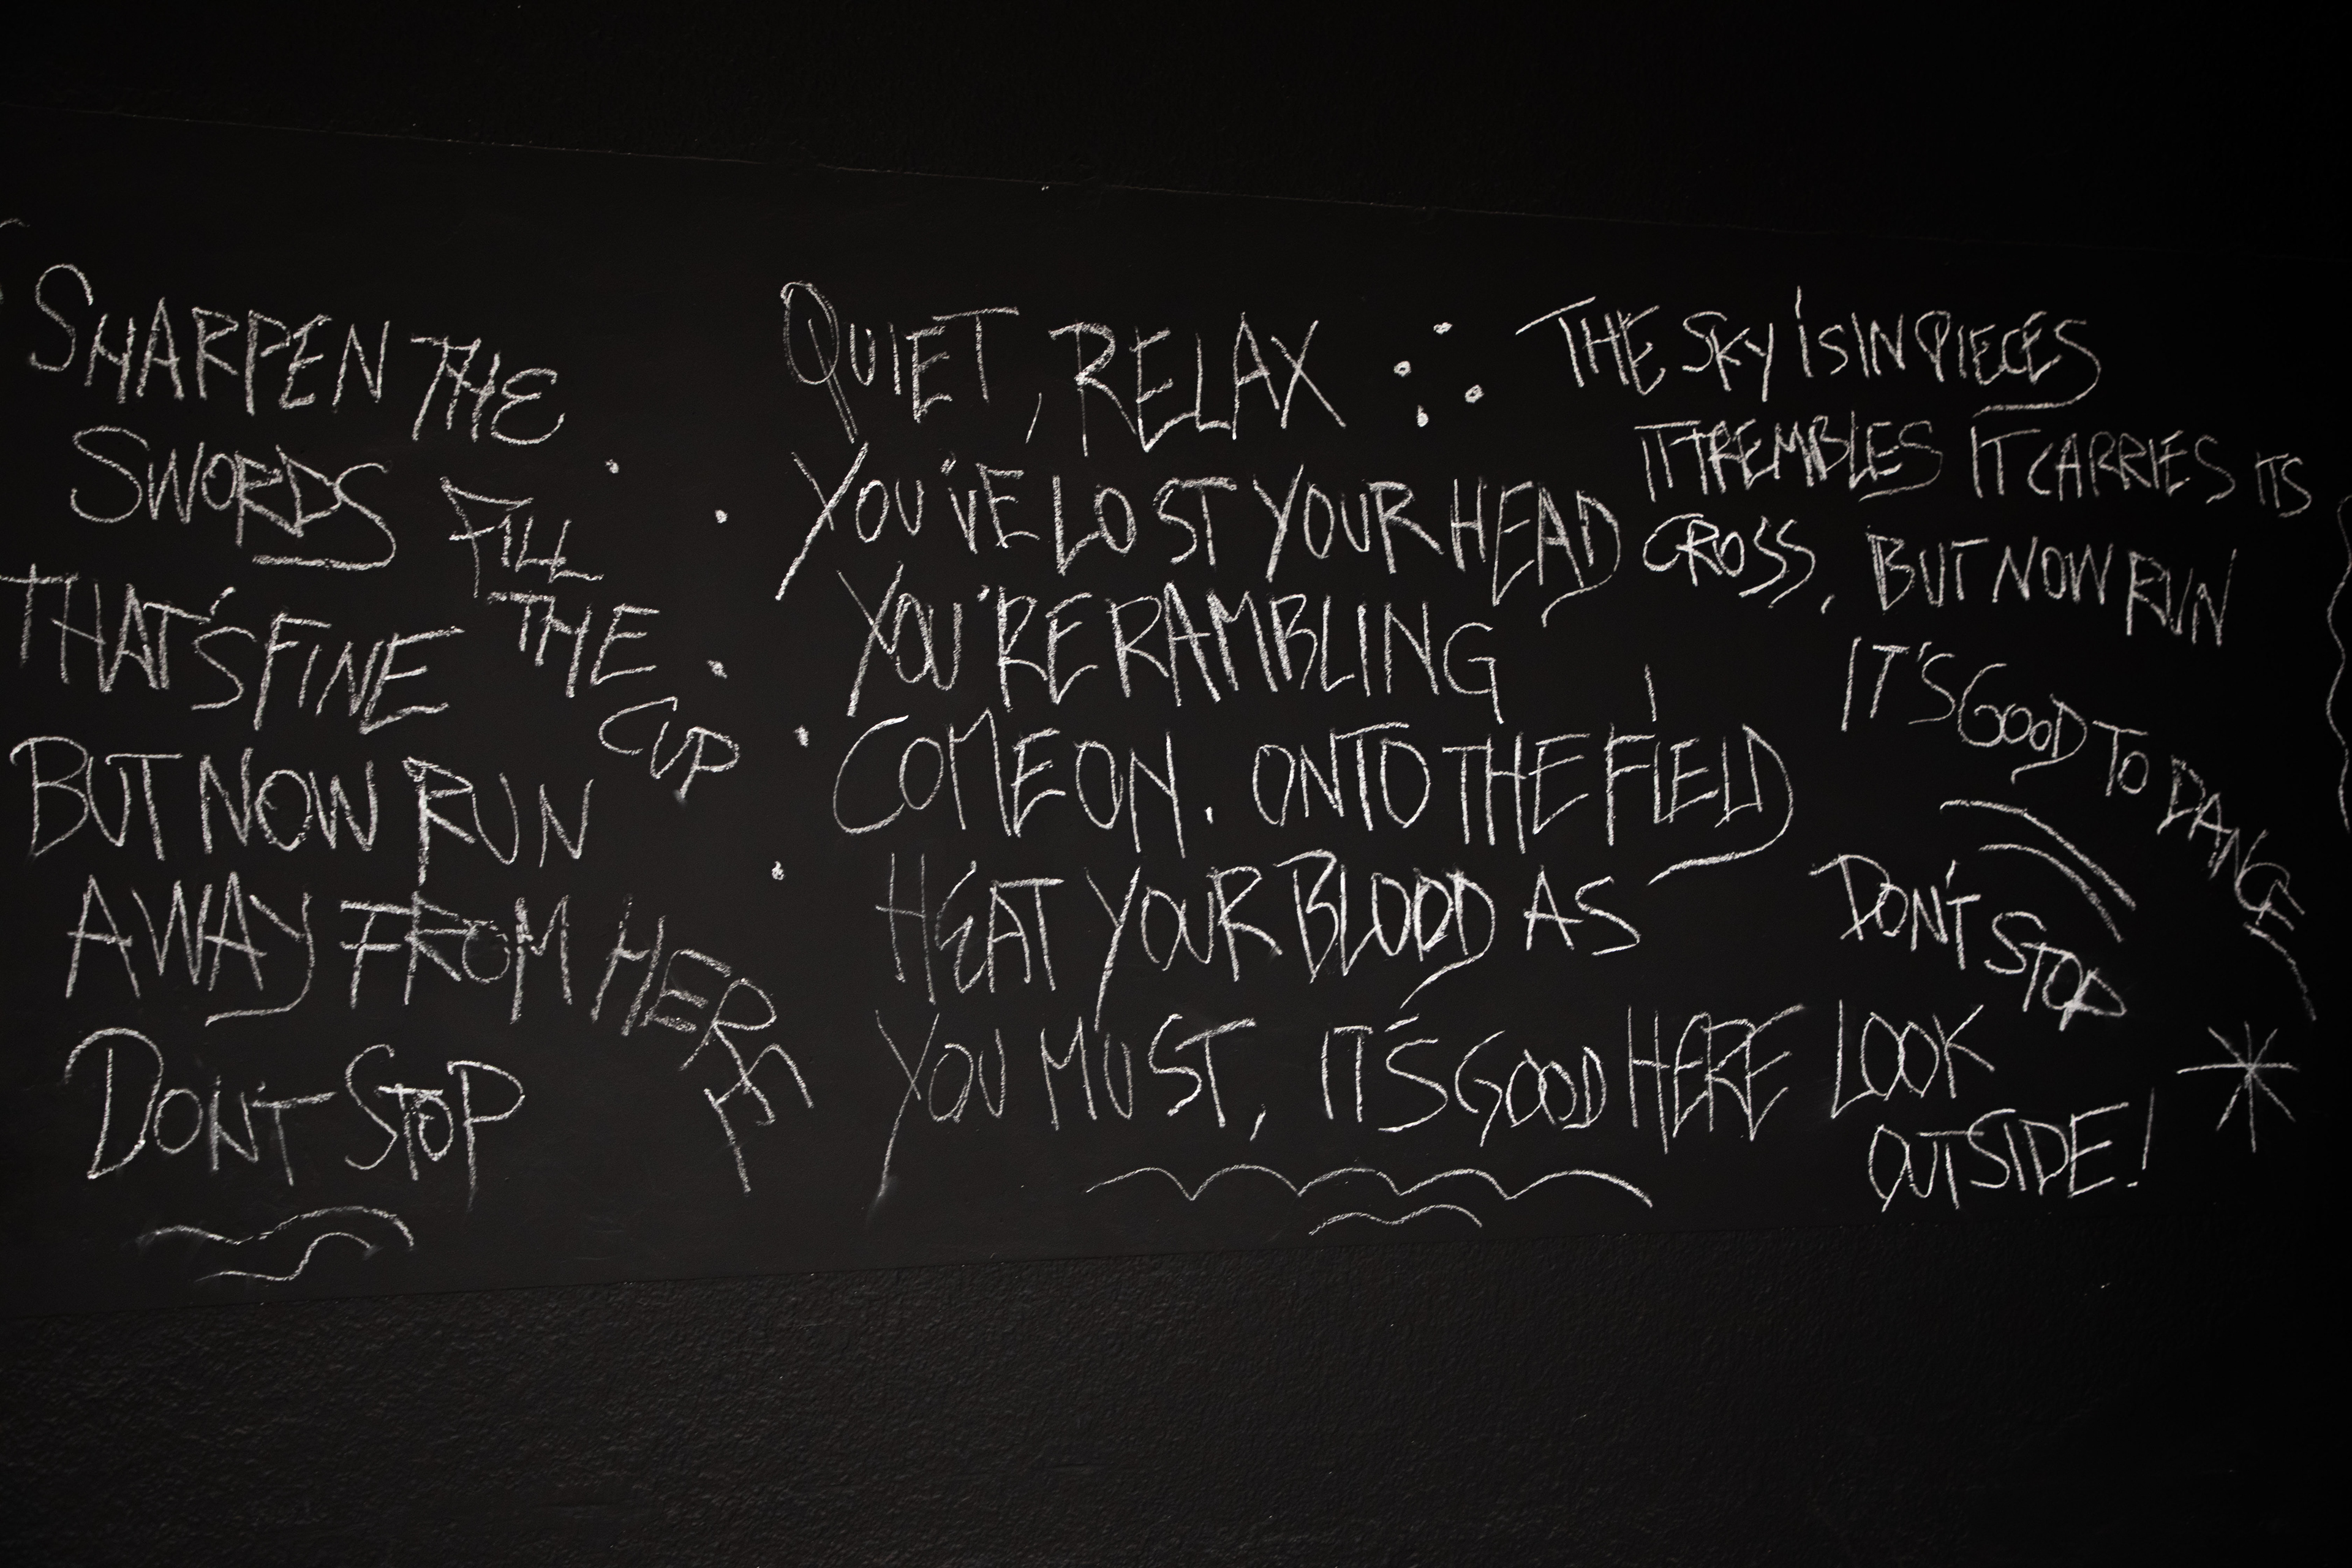 SHARPEN THE
SWORDS FILL
THE
CUP
THAT'S FINE
BUT NOW RUN
AWAY FROM HERE
DON'T STOP
QUIET, RELAX
YOU'VE LOST YOUR HEAD
YOU'RE RAMBLING
COME ON. ONTO THE FIELD
HEAT YOUR BLOOD AS
YOU MUST, IT'S GOOD HERE LOOK
OUTSIDE!
THE SKY IS IN PIECES
IT TREMBLES IT CARRIES ITS
CROSS, BUT NOW RUN
IT'S GOOD TO DANCE
DON'T STOP